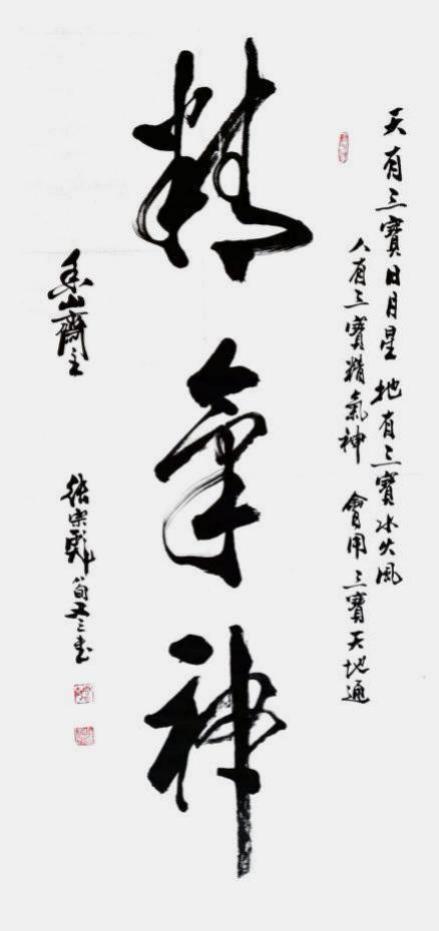 天有三寶日月星 地有三寶水火風
人有三寶精氣神 會用三寶天地通
精氣神
香山齋主 八旬又三書